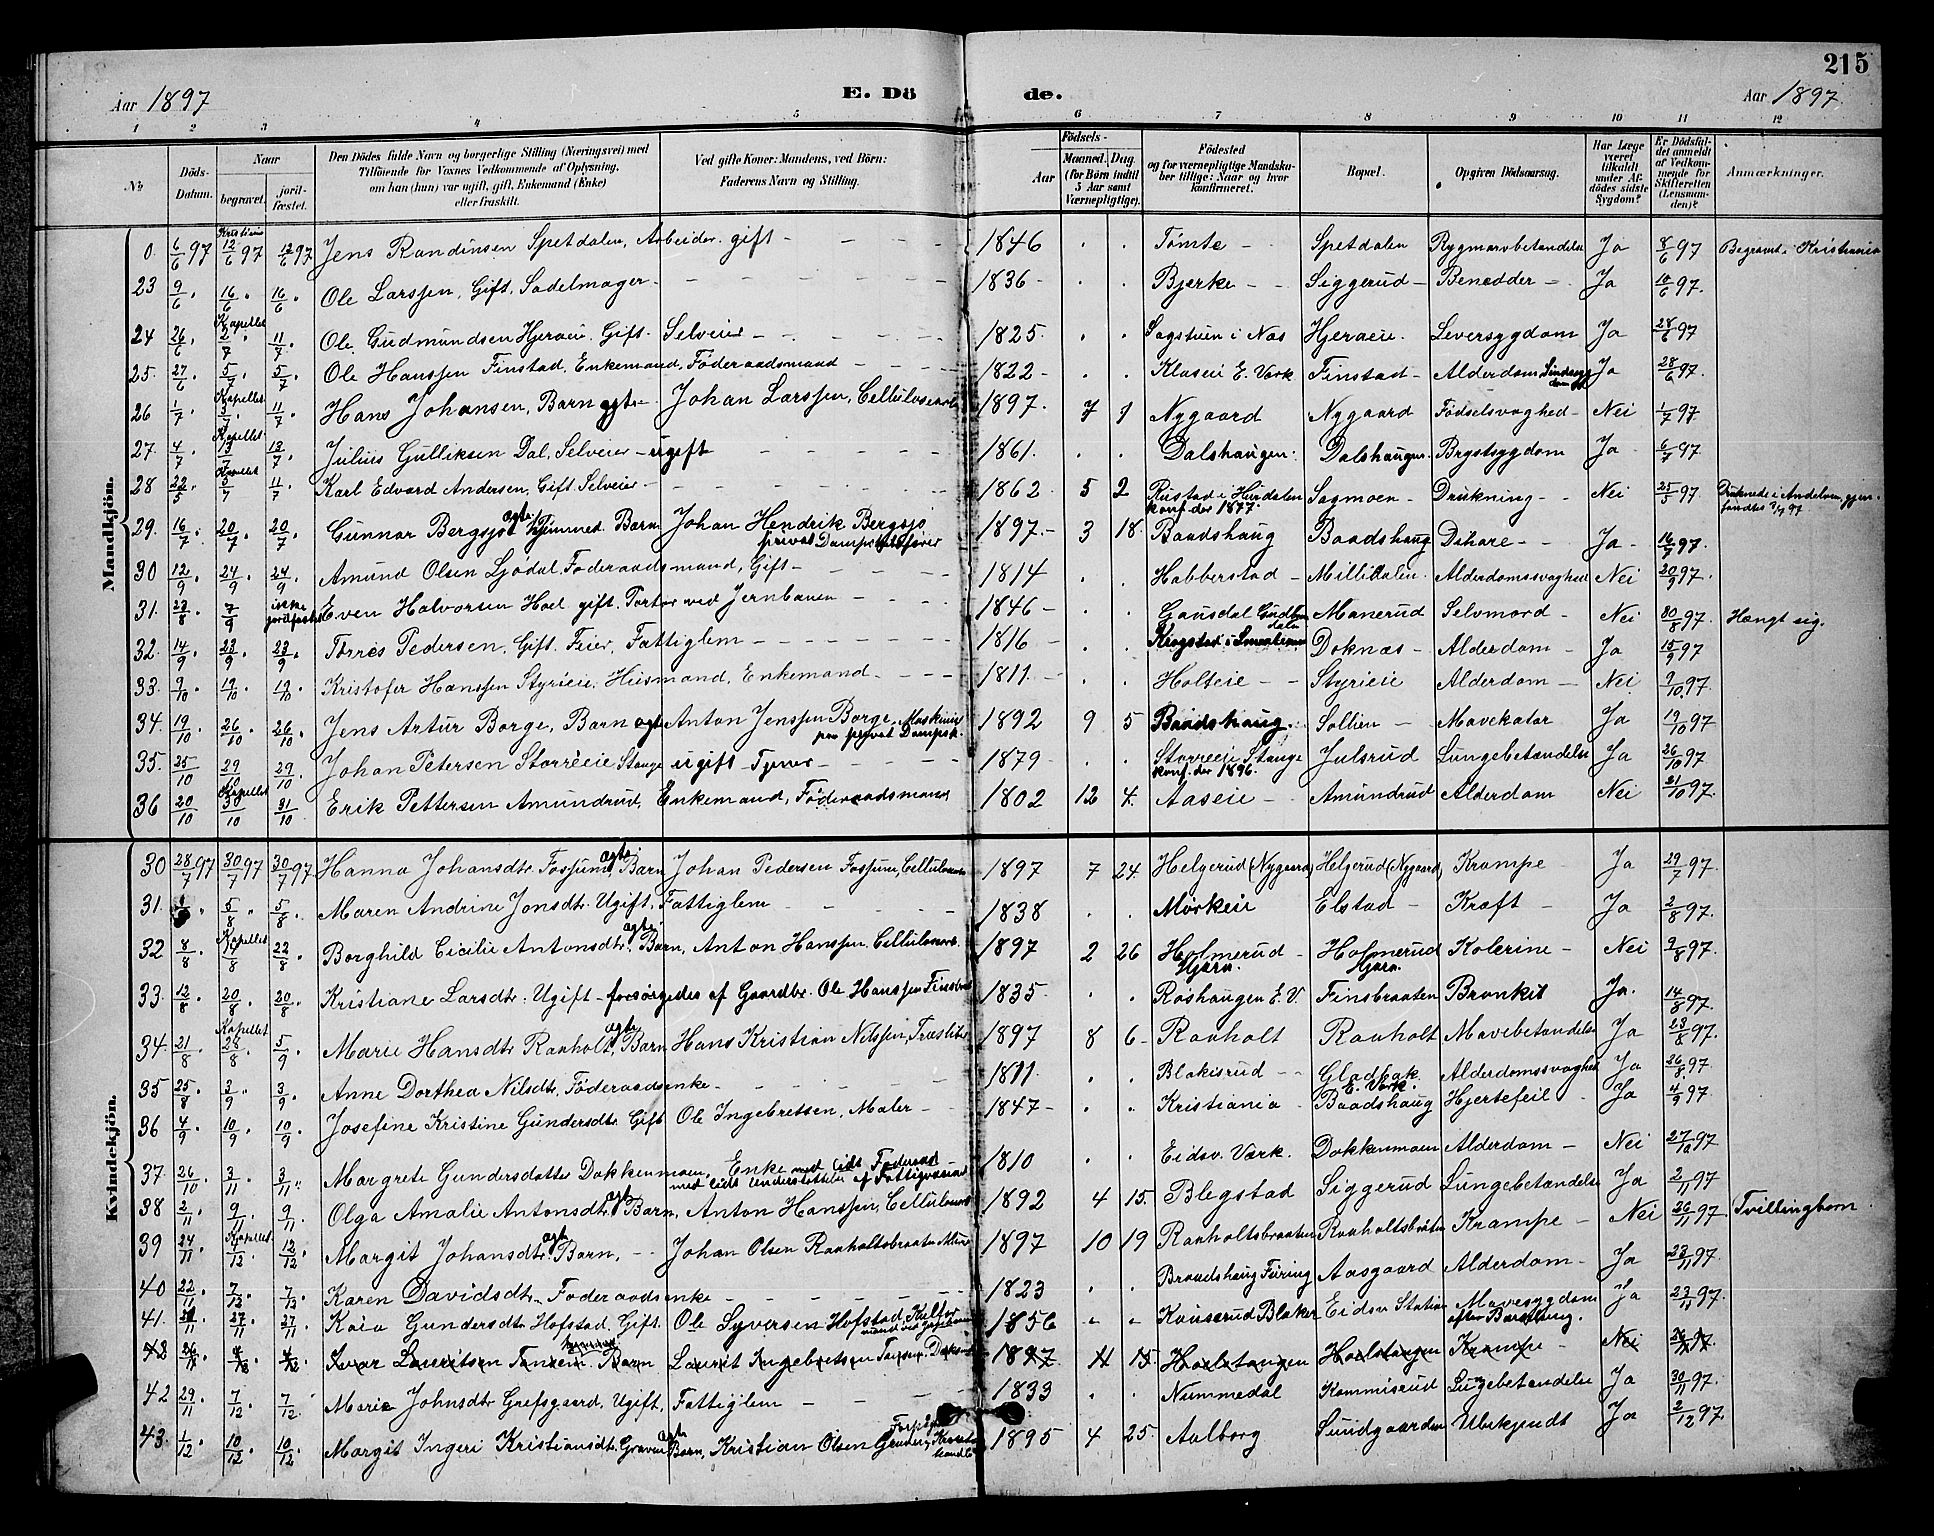 215
Aar 1897 E. Dö de. Aar 1897.
1 2 3 4 5 6 7 8 9 10 11 12
No Döds-Datum. Naar begravet. jordfæstet. Den Dödes fulde Navn og borgerlige Stilling (Næringsvei) med Tilföiende for Voxnes Vedkommende af Oplysning, om han (hun) var ugift, gift, Enkemand (Enke) eller fraskilt. Ved gifte Koner: Mandens, ved Börn: Faderens Navn og Stilling. Födsels- Aar Maaned. Dag. (for Börn indtil 5 Aar samt Værnepligtige). Födested og for værnepligtige Mandskaber tillige: Naar og hvor konfirmeret. Bopæl. Opgiven Dödsaarsag. Har Læge været tilkaldt under Afdödes sidste Sygdom? Er Dödsfaldet anmeldt af Vedkommende for Skifteretten (Lensmanden)? Anmærkninger.
Mandkjön.
0. 6/6 97 Kristiania 12/6 97 12/6 97 Jens Randinsen Spetdalen, Arbeider. gift - 1846 . . Tömte - Spetdalen Rygmarvbetændelse Ja 8/6 97 Begravet i Kristiania
23 9/6 . 16/6 . 16/6 . Ole Larssen, Gift. Sadelmager - 1836 - . . Bjerke - - Siggerud - Benødder - . Ja 10/6 97.
24 26/6 . Kapellet 2/7 . 11/7 . Ole Gudmundsen Hjeraeie. Gift. Selveier - 1825. . . Sagstuen i Næs Hjeraeie. Leversygdom Ja 28/6 97
25. 27/6 . 5/7 . 5/7 . Ole Hanssen Finstad, Enkemand, Föderaadsmand - 1822 - . . Klaseie E. Værk Finstad - Alderdom Ja 28/6 97.
26 1/7 . Kapellet 3/7 . 11/7 . Hans Johansen, Barn ægte - Johan Larssen, Cellulosearb. 1897. 7 1 Nygaard Nygaard Födselsvaghed - Nei 1/7 97
27. 4/7 . Kapellet 13/7 13/7 . Julius Gulliksen Dal, Selveier - ugift 1861. . . Dalshaugen. Dalshaugen. Brystsygdom Ja - 6/7 97
28 22/5 . Kapellet 5/7 11/7 . Karl Edvard Andersen, Gift. Selveier - 1862 . 5 2 Rustad i Hurdalen konf. der 1877. Sagmoen - Drukning - - Nei 25/5 97. Druknede i Andelven, gjenfandtes 97
29. 16/7 . 20/7 . 20/7 . Gunnar Bergsjö ægte hjemmed. Barn Johan Hendrik Bergsjö privat 1897. - 3 18. Baadshaug Baadshaug Diháre - - Ja - 16/7 97.
30 12/9 . 24/9 . 24/9 . Amund Olsen Ljödal, Föderaadsmand, Gift - 1814 . . Habberstad - Millidalen. Alderdomssvaghed Nei 20/9 97.
31. 28/8 . 7/9 ikke jordfæstet Even Halvorsen Hoel gift. Portør ved Jernbanen - 1846 - . . Gausdal Gudbrandsdalen Manerud Selvmord - Nei 30/8 97. Hængt sig.
32. 14/9 . 23/9 . 23/9 . Törris Pedersen, Gift. Feier, Fattiglem - 1816 - . . Kragstad i Doknæs - Alderdom - Ja 15/9 97
33. 9/10 . 19/10 . 19/10 . Kristofer Hanssen Styrieie, Husmand, Enkemand - 1811. - . . Holteie - - Styrieie Alderdom - Nei 9/10 97.
34. 19/10 . 26/10 . 26/10 . Jens Artur Borge, Barn ægte Anton Jenssen Borge, Maskinist paa privat Dampsk. 1892 9 5 Baadshaug. Sollien - Mavekatar Ja 19/10 97
35. 25/10 29/10 29/10 . Johan Petersen Storreeie Stange ugift - Tjener - 1879 . . Storreeie Stange konf. der 1896. Julsrud Lungebetændelse Ja 26/10 97.
36 20/10 Kapellet 30/10 31/10 Erik Pettersen Amundrud, Enkemand, Föderaadsmand 1802 12 4. Aaseie - Amundrud Alderdom Nei 21/10 97.
Kvindekjön.
30 28/7 97 30/7 97 30/7 97 Hanna Johansdtr. Fossum, ægte Barn Johan Pedersen Fossum, Cellulosearb 1897 7 24 Helgerud (Nygaard) Helgerud (Nygaard) Krampe - Ja 29/7 97.
31. . 5/8 . 5/8 . Maren Andrine Jonsdtr. Ugift, Fattiglem - 1838 . . Mörkeie Elstad - Kræft - Ja 2/8 97.
32 8/8 . Kapellet 22/8 . Borghild Cicilie Antonsdtr. ægte Barn, Anton Hanssen, Cellulosearb. 1897 2 26 Holmerud - Hjera. Holmerud Hjera. Kolerine - Nei 9/8 97.
33. 12/8 . 20/8 . 20/8 . Kristiane Larsdtr. Ugift - forsörgedes af Gaardbr. Ole Hanssen Finsbraat 1835. . . Roshaugen E. V. Finsbraaten Bronkit Ja. 14/8 97.
34. 21/8 . Kapellet 28/8 . 5/9 . Marie Hansdtr. Raaholt, ægte Barn Hans Kristian Nilssen, Træsliber 1897 8 6 - Raaholt Raaholt. Mavebetændelse Ja 23/8 97.
35 25/8 3/9 " 3/9 . Anne Dorthea Nilsdtr. Föderaadsenke - 1811. . . Blakisrud - - Gladbak E. Værk. Alderdomssvaghed Ja 26/8 97
36 4/9 . 10/9 . 10/9 . Josefine Kristine Gundersdtr. Gift Ole Ingebretsen, Maler - 1847 - . . Kristiania - Baadshaug Hjertefeil - Ja 4/9 97.
37. 26/10 . 3/11 . 3/11 . Margrete Gundersdatter Dokkenmoen, Enke med lidt Föderaad med lidt Understöttelse af Fattigvæsenet 1810 . . Eidsv. Værk. Dokkenmoen Alderdom - Nei 27/10 97
38 2/11 . 9/11 . 9/11 . Olga Amalie Antonsdtr. ægte Barn, Anton Hanssen, Cellulosearb 1892 4 15. Blegstad Siggerud Lungebetændelse Ja 2/11 97
39 24/11 . Kapellet 7/12 . 12/12 . Margit Johansdtr. ægte Barn, - - Johan Olsen Raaholtsbraaten 1897 10 19 Raaholtsbraaten Raaholtsbråten Krampe - Nei 26/11 97. Tvillingbarn.
40 22/11 . 7/12 . 7/12 . Karen Davidsdtr. Föderaadsenke - 1823 . . Braadshaug Füring Aasgaard Alderdom - Ja 23/11 97.
41. 21/11 27/11 . 27/11 . Kaia Gundersdtr. Hofstad, Gift. Ole Syversen Hofstad, 1856 " " Kauserud Blaker Eidsv. Station Mavesygdom efter Barselseng. Ja 23/11 97.
42 26/11 . Ivar Lauritsen Tansem. Barn Laurit Ingebretsen Tansem. 1897 11 15. Hoelstangen Hoelstangen Krampe - Nei 97.
42 29/11 . 7/12 . 7/12 . Marie Johnsdtr. Græfsgaard, Ugift, Fattiglem - 1833 . . Nummedal Kommisrud Lungebetændelse Ja 30/11 97.
43. 1/12 . 10/12 . 10/12 . Margit Ingeri Kristiansdtr. ægte Barn, Kristian Olsen 1895 4 25. Aalborg Sundgaarden Ubekjendt Ja 2/12 97.